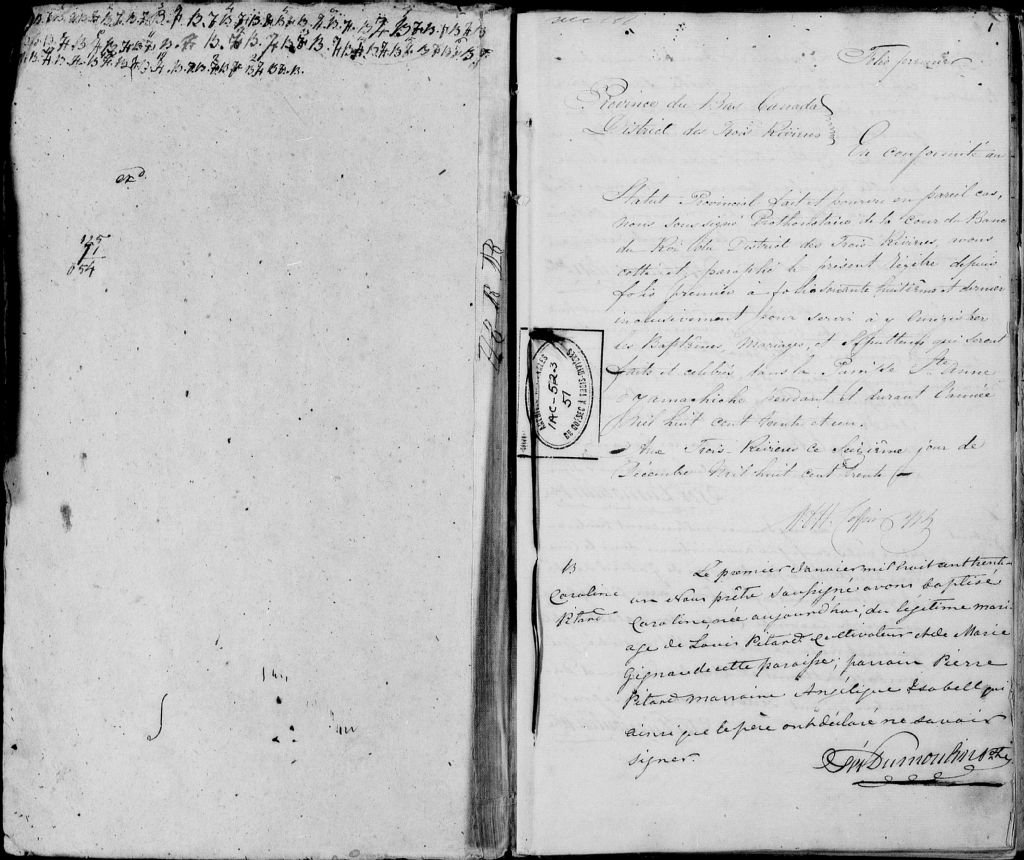 exd.
125
71
054
1
Folio premier
Province du Bas Canada
District des Trois Rivieres
En conformité au
Statut Provincial fait et pourvu en pareil cas,
nous soussigné Prothonotaire de la Cour du Banc
du Roi du District des Trois Rivières, avons
cotté et paraphé le présent Régître depuis
folio premier à folio soixante huitième et dernier
inclusivement pour servir à y enrégistrer
les Baptêmes, Mariages, et Sépultures qui seront
faits et célébrés dans la Paroisse Ste. Anne
d'Yamachiche pendant et durant l'année
Mil huit cent trente et un.
Aux Trois-Rivières ce Seizième jour de
Décembre Mil huit cent trente
Coffin
ARCHIVES NATIONALES
IAC-523
51
DU QUEBEC A TROIS-RIVIERES
B
Caroline
Pitard
Le premier Janvier mil huit cent trente-
un Nous prêtre soussigné avons baptisé
Caroline née aujourd'hui, du légitime mari-
age de Louis Pitard Cultivateur et de Marie
Gignac de cette paroisse; parrain Pierre
Pitard marraine Angélique Isabell qui
ainsi que le père ont déclaré ne savoir
signer.
Sév Dumoulin Ptre